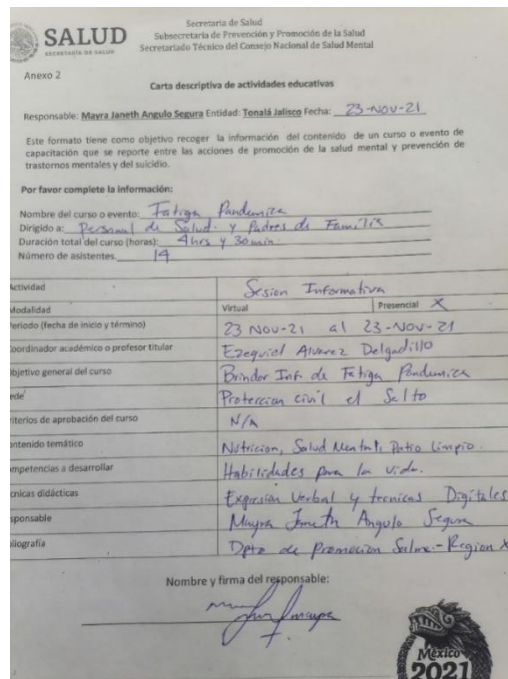 Secretaría de Salud
SALUD
SECRETARÍA DE SALUD
Subsecretaría de Prevención y Promoción de la Salud
Secretariado Técnico del Consejo Nacional de Salud Mental
Anexo 2
Carta descriptiva de actividades educativas
Responsable: Mayra Janeth Angulo Segura Entidad: Tonalá Jalisco Fecha: 23-NOV-21
Este formato tiene como objetivo recoger la información del contenido de un curso o evento de
capacitación que se reporte entre las acciones de promoción de la salud mental y prevención de
trastornos mentales y del suicidio.
Por favor complete la información:
Nombre del curso o evento: Fatiga Pandemica
Dirigido a: Personal de Salud. y Padres de Familia
Duración total del curso (horas): 4hrs y 30 min
Número de asistentes. 14
Actividad Sesion Informativa
Modalidad Virtual Presencial X
Periodo (fecha de inicio y término) 23 NOV-21 al 23-NOV-21
Coordinador académico o profesor titular Ezequiel Alvarez Delgadillo
Objetivo general del curso Brindar Inf. de Fatiga Pandemica
Sede Proteccion civil el Salto
Criterios de aprobación del curso N/A
Contenido temático Nutricion, Salud Mental, Patio Limpio.
Competencias a desarrollar Habilidades para la vida.
Técnicas didácticas Expresion Verbal y tecnicas Digitales
Responsable Mayra Janeth Angulo Segura
Bibliografía Dpto de Promocion Salme - Region X
Nombre y firma del responsable:
México
2021